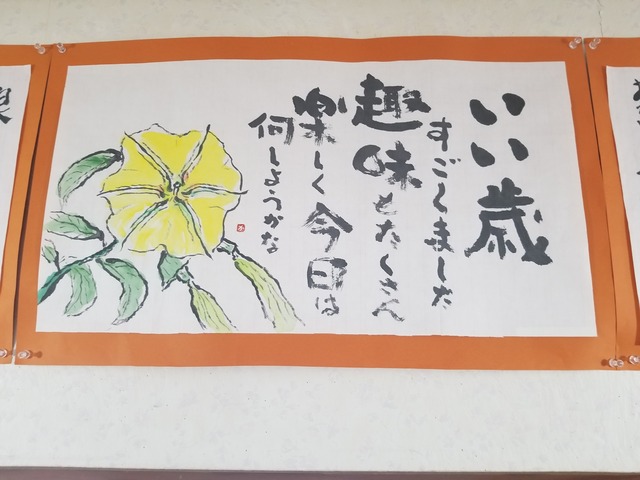 いい歳
すごくました
趣味もたくさん
楽しく今日は
何しようかな